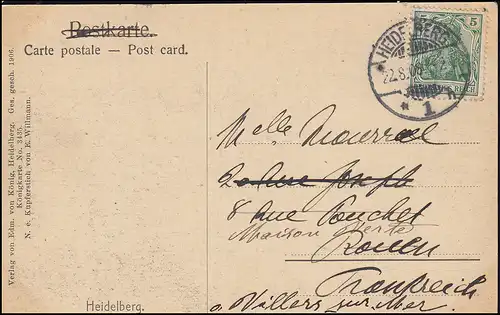 Postkarte.
Carte postale — Post card.
HEIDELBERG
22.8.06
* 1
5
REICH
Verlag von Edm. von König, Heidelberg. Ges. gesch. 1906.
Königkarte No. 3435.
N. e. Kupferstich von E. Willmann.
Melle
rue Joseph
8 rue Pouchet
Maison Verte
Rouen
Frankreich
Villers sur Mer
Heidelberg.